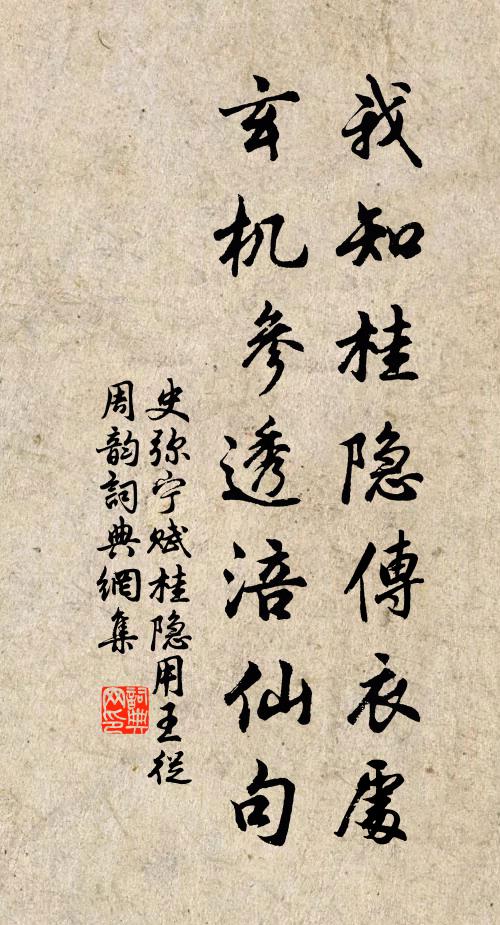 我知桂隐傳衣處
玄机參透涪仙句
史弥宁赋桂隐用王從
周韵詞典網集
詞典网印